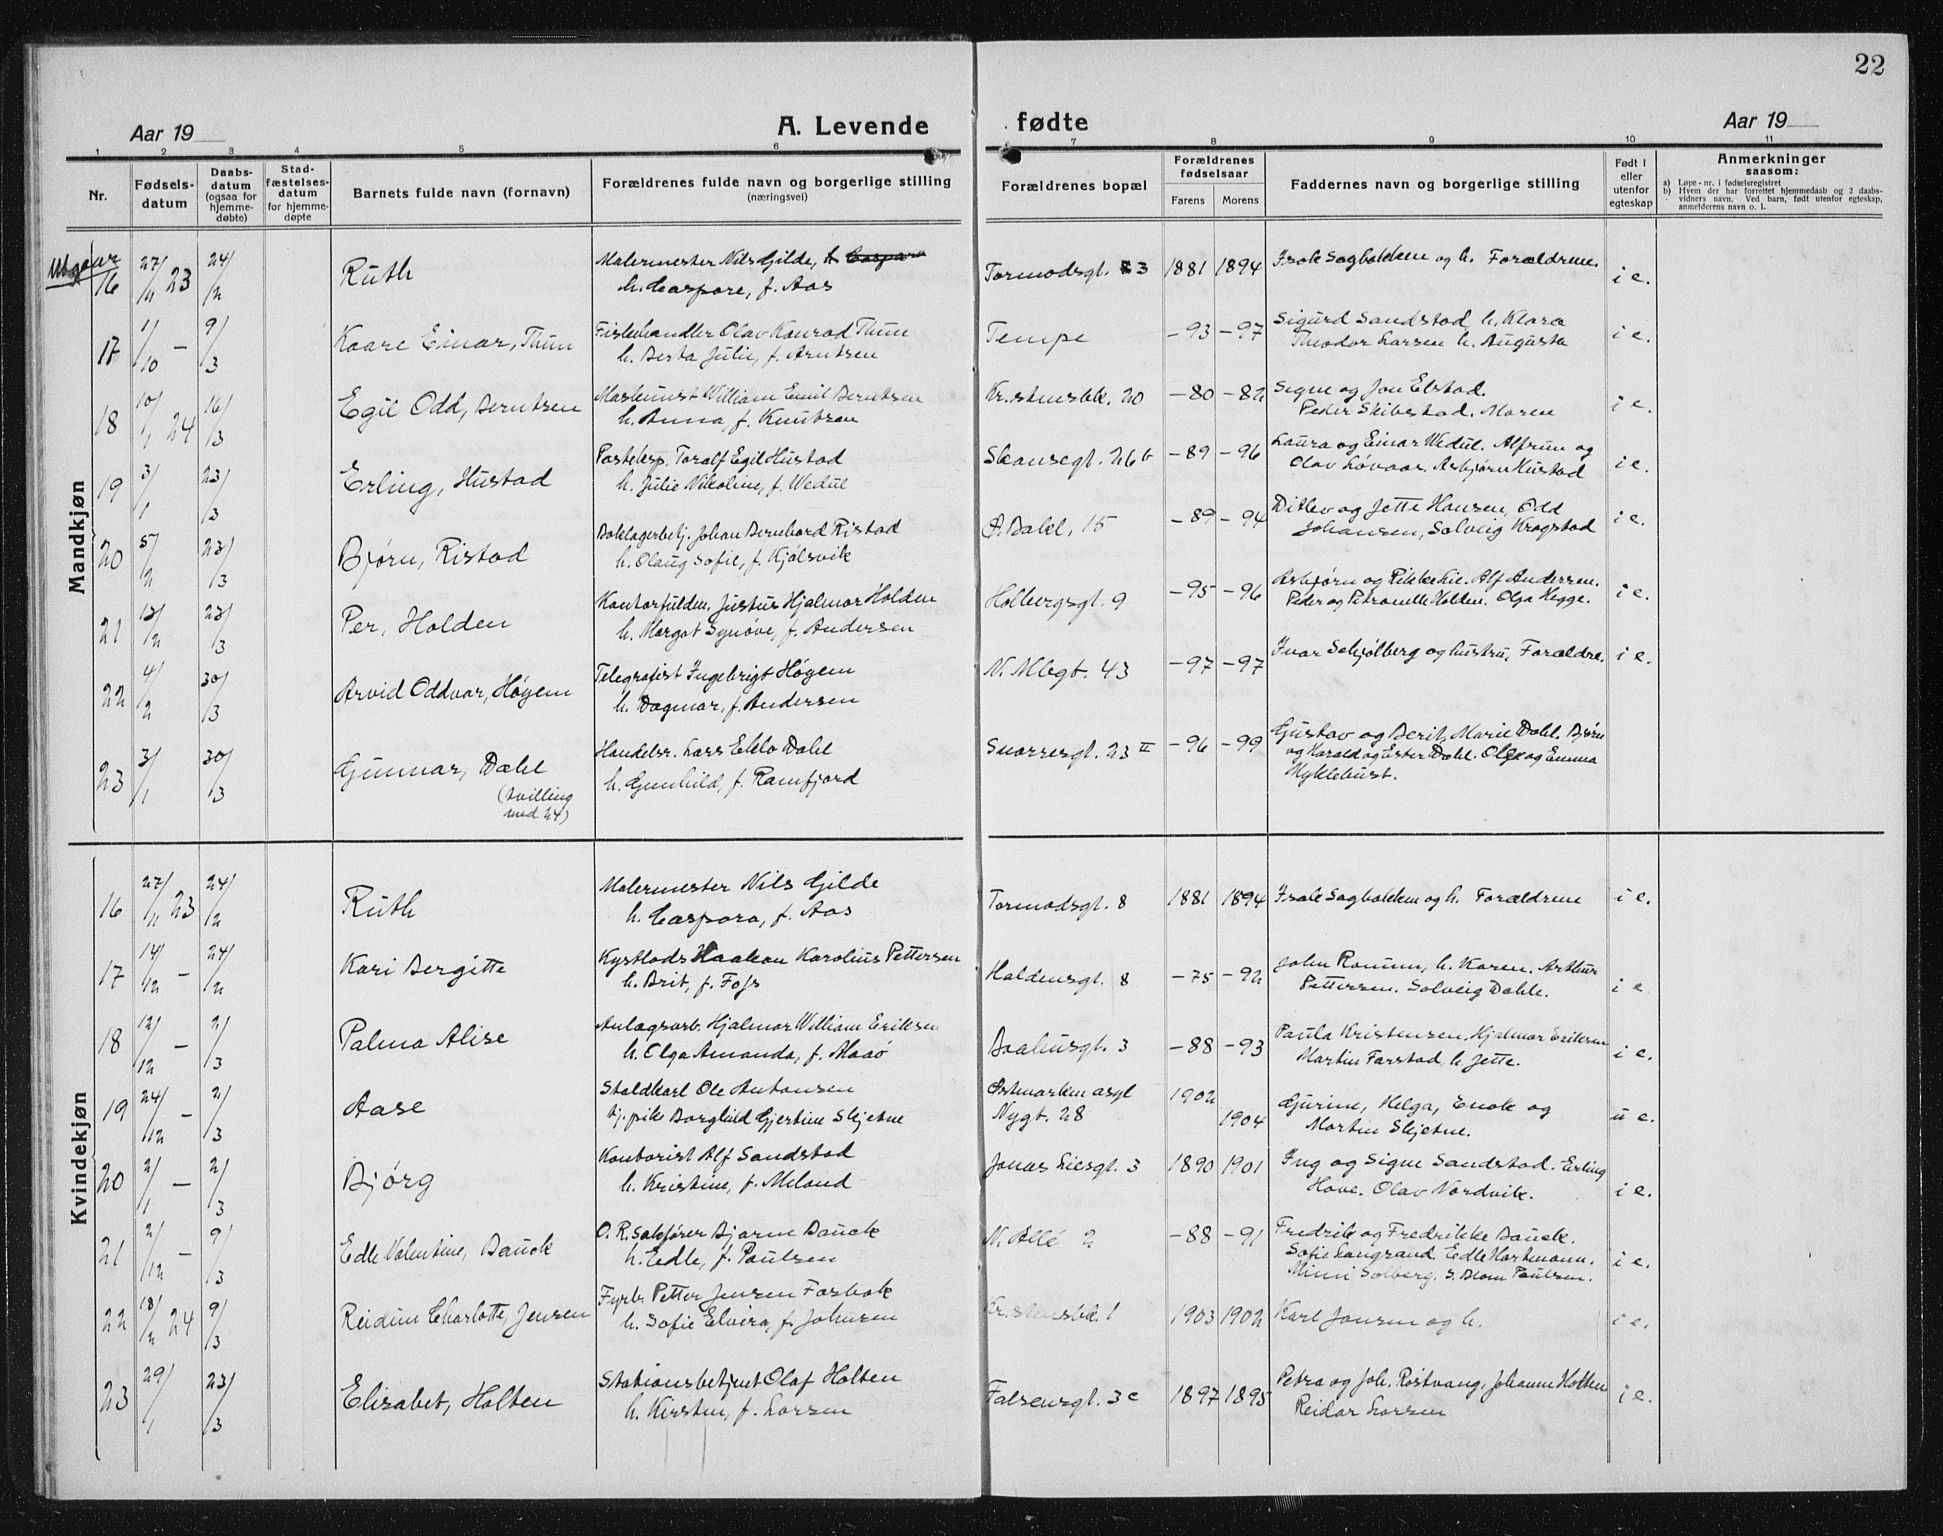 22
Aar 19
A. Levende
fødte
Aar 19
1 2 3 4 5 6 7 8 9 10 11
Nr.
Fødsels-
datum
Daabs-
datum
(ogsaa for
hjemme-
døbte)
Stad-
fæstelses-
datum
for hjemme-
døpte
Barnets fulde navn (fornavn)
Forældrenes fulde navn og borgerlige stilling
(næringsvei)
Forældrenes bopæl
Forældrenes
fødselsaar
Farens Morens
Faddernes navn og borgerlige stilling
Født i
eller
utenfor
egteskap
Anmerkninger
saasom:
a) Løpe-nr. i fødselsregistret
b) Hvem der har forrettet hjemmedaab og 2 daabs-
vidners navn. Ved barn, født utenfor egteskap,
anmelderens navn o. l.
Mandkjøn
Utgaar
16 27/11 23 24/2 Ruth
Malermester Nils Gilde,
h. Caspare, f. Aas
Tormodsgt. 3 1881 1894
Isak Sagbakken og h. Forældrene. i e.
17 1/10 — 9/3 Kaare Einar, Thun
Fiskehandler Olav Konrad Thun
h. Berta Julie, f. Arntsen
Tempe —93 —97
Sigurd Sandstad, h. Klara
Theodor Larsen h. Augusta i e.
18 10/1 24 16/3 Egil Odd, Berntsen
Maskinist William Emil Berntsen
h. Anna, f. Knutsen
Kr.stensbk. 20 —80 —82
Signe og Jon Elstad.
Peder Skibestad. Maren i e.
19 3/1 23/3 Erling, Hustad
Posteksp. Toralf Egil Hustad
h. Julie Nikoline, f. Wedul
Skansegt. 26 b —89 —96
Laura og Einar Wedul. Alfrun og
Olav Løvaar. Asbjørn Hustad i e.
20 5/2 23/3 Bjørn, Ristad
Boklagerbetj. Johan Bernhard Ristad
h. Olaug Sofie, f. Kjølsvik
Ø. Bakl. 15 —89 —94
Ditlev og Jette Hansen, Odd
Johansen, Solveig Krogstad i e.
21 13/2 23/3 Per, Holden
Kontorfuldm. Justus Hjalmar Holden
h. Margot Synøve, f. Andersen
Holbergsgt. 9 —95 —96
Asbjørn og Rikke Lie. Alf Andersen.
Peder og Petronelle Holten. Olga Hegge. i e.
22 4/2 30/3 Arvid Oddvar, Høyem
Telegrafist Ingebrigt Høyem
h. Dagmar, f. Andersen
N. Mbgt. 43 —97 —97
Ivar Schjølberg og hustru, Forældre. i e.
23 3/1 30/3 Gunnar, Dahl
(tvilling
med 24)
Handelsr. Lars Eklo Dahl
h. Gunhild, f. Ramfjord
Snorresgt. 23 II —96 —99
Gustav og Berit, Marie Dahl. Bjørn
og Harald og Ester Dahl. Olga og Emma
Myklebust.
Kvindekjøn
16 27/11 23 24/2 Ruth
Malermester Nils Gilde
h. Caspara, f. Aas
Tormodsgt. 8 1881 1894
Isak Sagbakken og h. Forældrene i e.
17 14/12 — 24/2 Kari Bergitte
Kystlods Haakon Karolius Pettersen
h. Brit, f. Foss
Haldensgt. 8 —75 —92
John Ramun, h. Karen. Arthur
Pettersen. Solveig Dahle. i e
18 12/12 — 2/3 Palma Alise
Anlægsarb. Hjalmar William Eriksen
h. Olga Amanda, f. Maaø
Baahusgt. 3 —88 —93
Paula Kristensen. Hjalmar Eriksen
Martin Farstad h. Jette. i e.
19 24/12 — 2/3 Aase
Staldkarl Ole Antonsen
tj. pike Borghild Gjertine Skjetne
Østmarken asyl
Nygt. 28 1902
1904
Gurine, Helga, Enok og
Martin Skjetne. u e.
20 2/1 — 2/3 Bjørg
Kontorist Alf Sandstad
h. Kristine, f. Meland
Jonas Liesgt. 3 1890 1901
Ing og Signe Sandstad. Erling
Hove. Olav Nordvik. i e.
21 2/12 — 9/3 Edle Valentine, Bauck
O. R. Sakfører Bjarne Bauck
h. Edle, f. Paulsen
N. Allé 2 —88 —91
Fredrik og Fredrikke Bauck.
Sofie Langrand. Edle Hartmann.
Mimi Solberg. S. Blom Paulsen. i e.
22 18/2 24 9/3 Reidun Charlotte, Jensen
Fyrb. Petter Jensen Farbak
h. Sofie Elvira, f. Johnsen
Kr.stensbk. 1 1903 1902 Karl Jonsen og h. i e.
23 29/1 23/3 Elisabet, Holten
Stationsbetjent Olaf Holten
h. Kirsten, f. Larsen
Falsensgt. 3 c 1897 1895
Petra og Joh. Røstvang, Johanne Holten
Reidar Larsen i e.